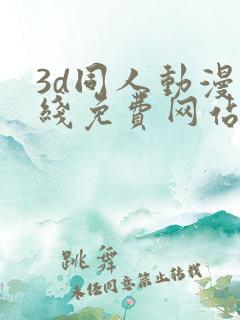 3d同人動漫
綫免费网站
跳舞
未任同意禁止转载